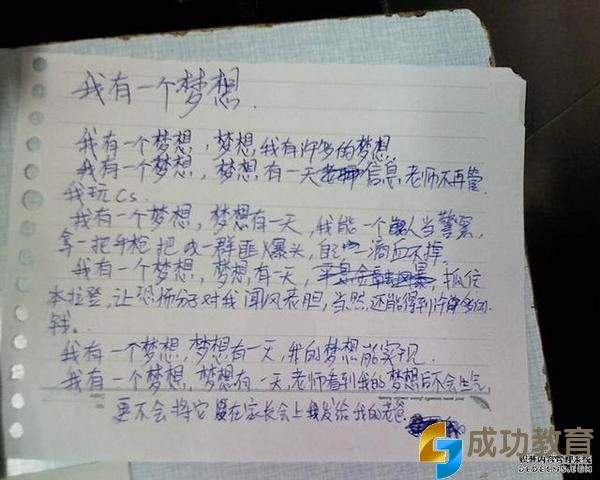 我有一个梦想.
我有一个梦想,梦想我有许多的梦想.
我有一个梦想,梦想有一天信息老师不再管
我玩cs.
我有一个梦想,梦想有一天,我能一个人当警察,
拿一把手枪把一群匪人爆头,自己一滴血不掉
我有一个梦想,梦想有一天,抓住
本拉登,让恐怖分子对我闻风丧胆,当然还能得到许多的
钱。
我有一个梦想,梦想有一天,我的梦想能实现.
我有一个梦想,梦想有一天,老师看到我的梦想后不会生气,
更不会将它在家长会上发给我的老爸
成功教育
织梦内容管理系统
DEDECMS.COM